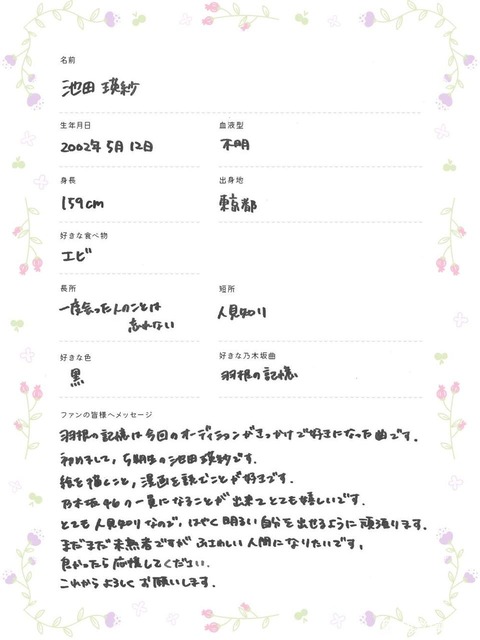 名前
池田 瑛紗
生年月日
2002年 5月 12日
血液型
不明
身長
159cm
出身地
東京都
好きな食べ物
エビ
長所
一度会った人のことは
忘れない
短所
人見知り
好きな色
黒
好きな乃木坂曲
羽根の記憶
ファンの皆様へメッセージ
羽根の記憶は今回のオーディションがきっかけで好きになった曲です。
初めまして、5期生の池田瑛紗です。
絵を描くこと、漫画を読むことが好きです。
乃木坂46の一員になることが出来てとても嬉しいです。
とても人見知りなので、はやく明るい自分を出せるように頑張ります。
まだまだ未熟者ですが ふさわしい人間になりたいです。
良かったら応援してください。
これからよろしくお願いします。